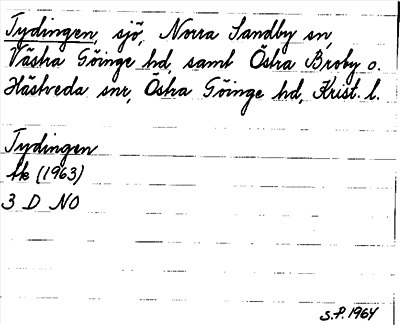 Tydingen, sjö, Norra Sandby sn,
Västra Göinge hd, samt Östra Broby o.
Hästveda snr, Östra Göinge hd, Krist. l.
Tydingen
Ak (1963)
3 D NO
S.P. 1964